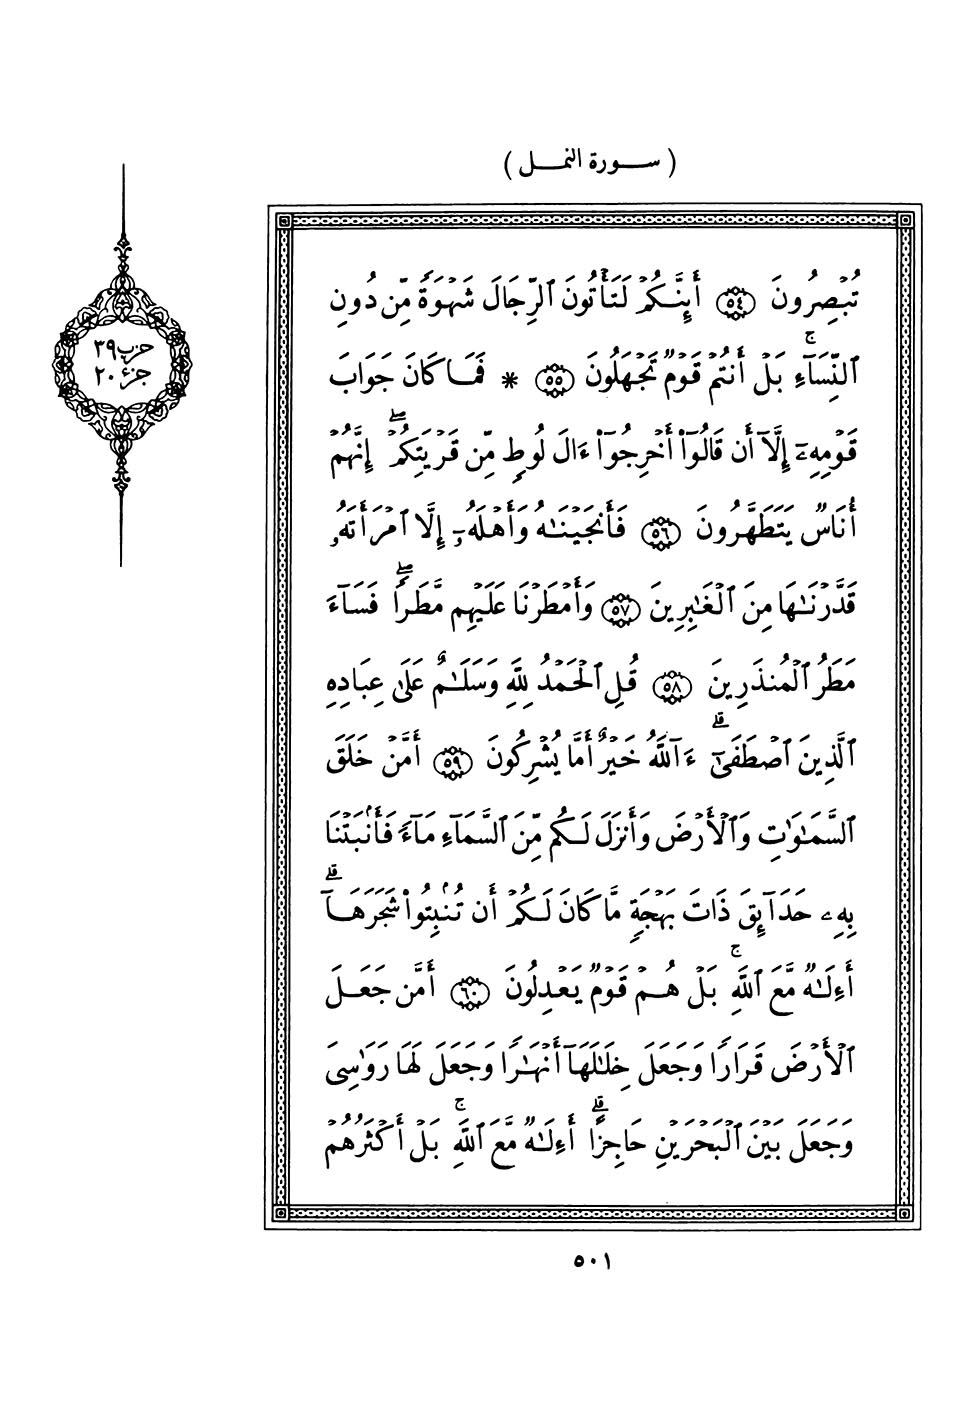 ( سورة النمل )
حزب ٣٩
جزء ٢٠
تُبْصِرُونَ ٥٤ أَئِنَّكُمْ لَتَأْتُونَ ٱلرِّجَالَ شَهْوَةً مِّن دُونِ
ٱلنِّسَآءِۚ بَلْ أَنتُمْ قَوْمٌ تَجْهَلُونَ ٥٥ * فَمَا كَانَ جَوَابَ
قَوْمِهِۦٓ إِلَّآ أَن قَالُوٓا۟ أَخْرِجُوٓا۟ ءَالَ لُوطٍ مِّن قَرْيَتِكُمْۖ إِنَّهُمْ
أُنَاسٌ يَتَطَهَّرُونَ ٥٦ فَأَنجَيْنَـٰهُ وَأَهْلَهُۥٓ إِلَّا ٱمْرَأَتَهُۥ
قَدَّرْنَـٰهَا مِنَ ٱلْغَـٰبِرِينَ ٥٧ وَأَمْطَرْنَا عَلَيْهِم مَّطَرًاۖ فَسَآءَ
مَطَرُ ٱلْمُنذَرِينَ ٥٨ قُلِ ٱلْحَمْدُ لِلَّهِ وَسَلَـٰمٌ عَلَىٰ عِبَادِهِ
ٱلَّذِينَ ٱصْطَفَىٰٓۗ ءَآللَّهُ خَيْرٌ أَمَّا يُشْرِكُونَ ٥٩ أَمَّنْ خَلَقَ
ٱلسَّمَـٰوَٰتِ وَٱلْأَرْضَ وَأَنزَلَ لَكُم مِّنَ ٱلسَّمَآءِ مَآءً فَأَنۢبَتْنَا
بِهِۦ حَدَآئِقَ ذَاتَ بَهْجَةٍ مَّا كَانَ لَكُمْ أَن تُنۢبِتُوا۟ شَجَرَهَآۗ
أَءِلَـٰهٌ مَّعَ ٱللَّهِۚ بَلْ هُمْ قَوْمٌ يَعْدِلُونَ ٦٠ أَمَّن جَعَلَ
ٱلْأَرْضَ قَرَارًا وَجَعَلَ خِلَـٰلَهَآ أَنْهَـٰرًا وَجَعَلَ لَهَا رَوَٰسِىَ
وَجَعَلَ بَيْنَ ٱلْبَحْرَيْنِ حَاجِزًاۗ أَءِلَـٰهٌ مَّعَ ٱللَّهِۚ بَلْ أَكْثَرُهُمْ
٥٠١